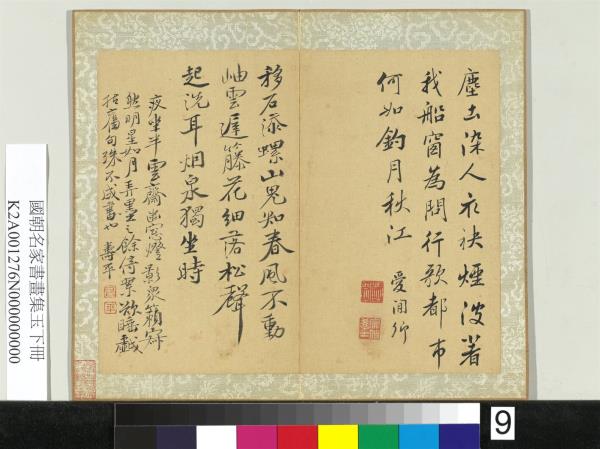 塵土染人衣袂煙波著
我船窗為問行歌都市
何如釣月秋江
愛閒行
移石添螺山鬼知春風不動
岫雲遲藤花細落松聲
起洗耳烟泉獨坐時
夜坐半雲齋幽窗燈影衆籟寂
然明星如月弄墨之餘停案欲睡戲
拈舊句殊不成書也 壽平
國朝名家書畫集玉下冊
K2A001276N000000000
9